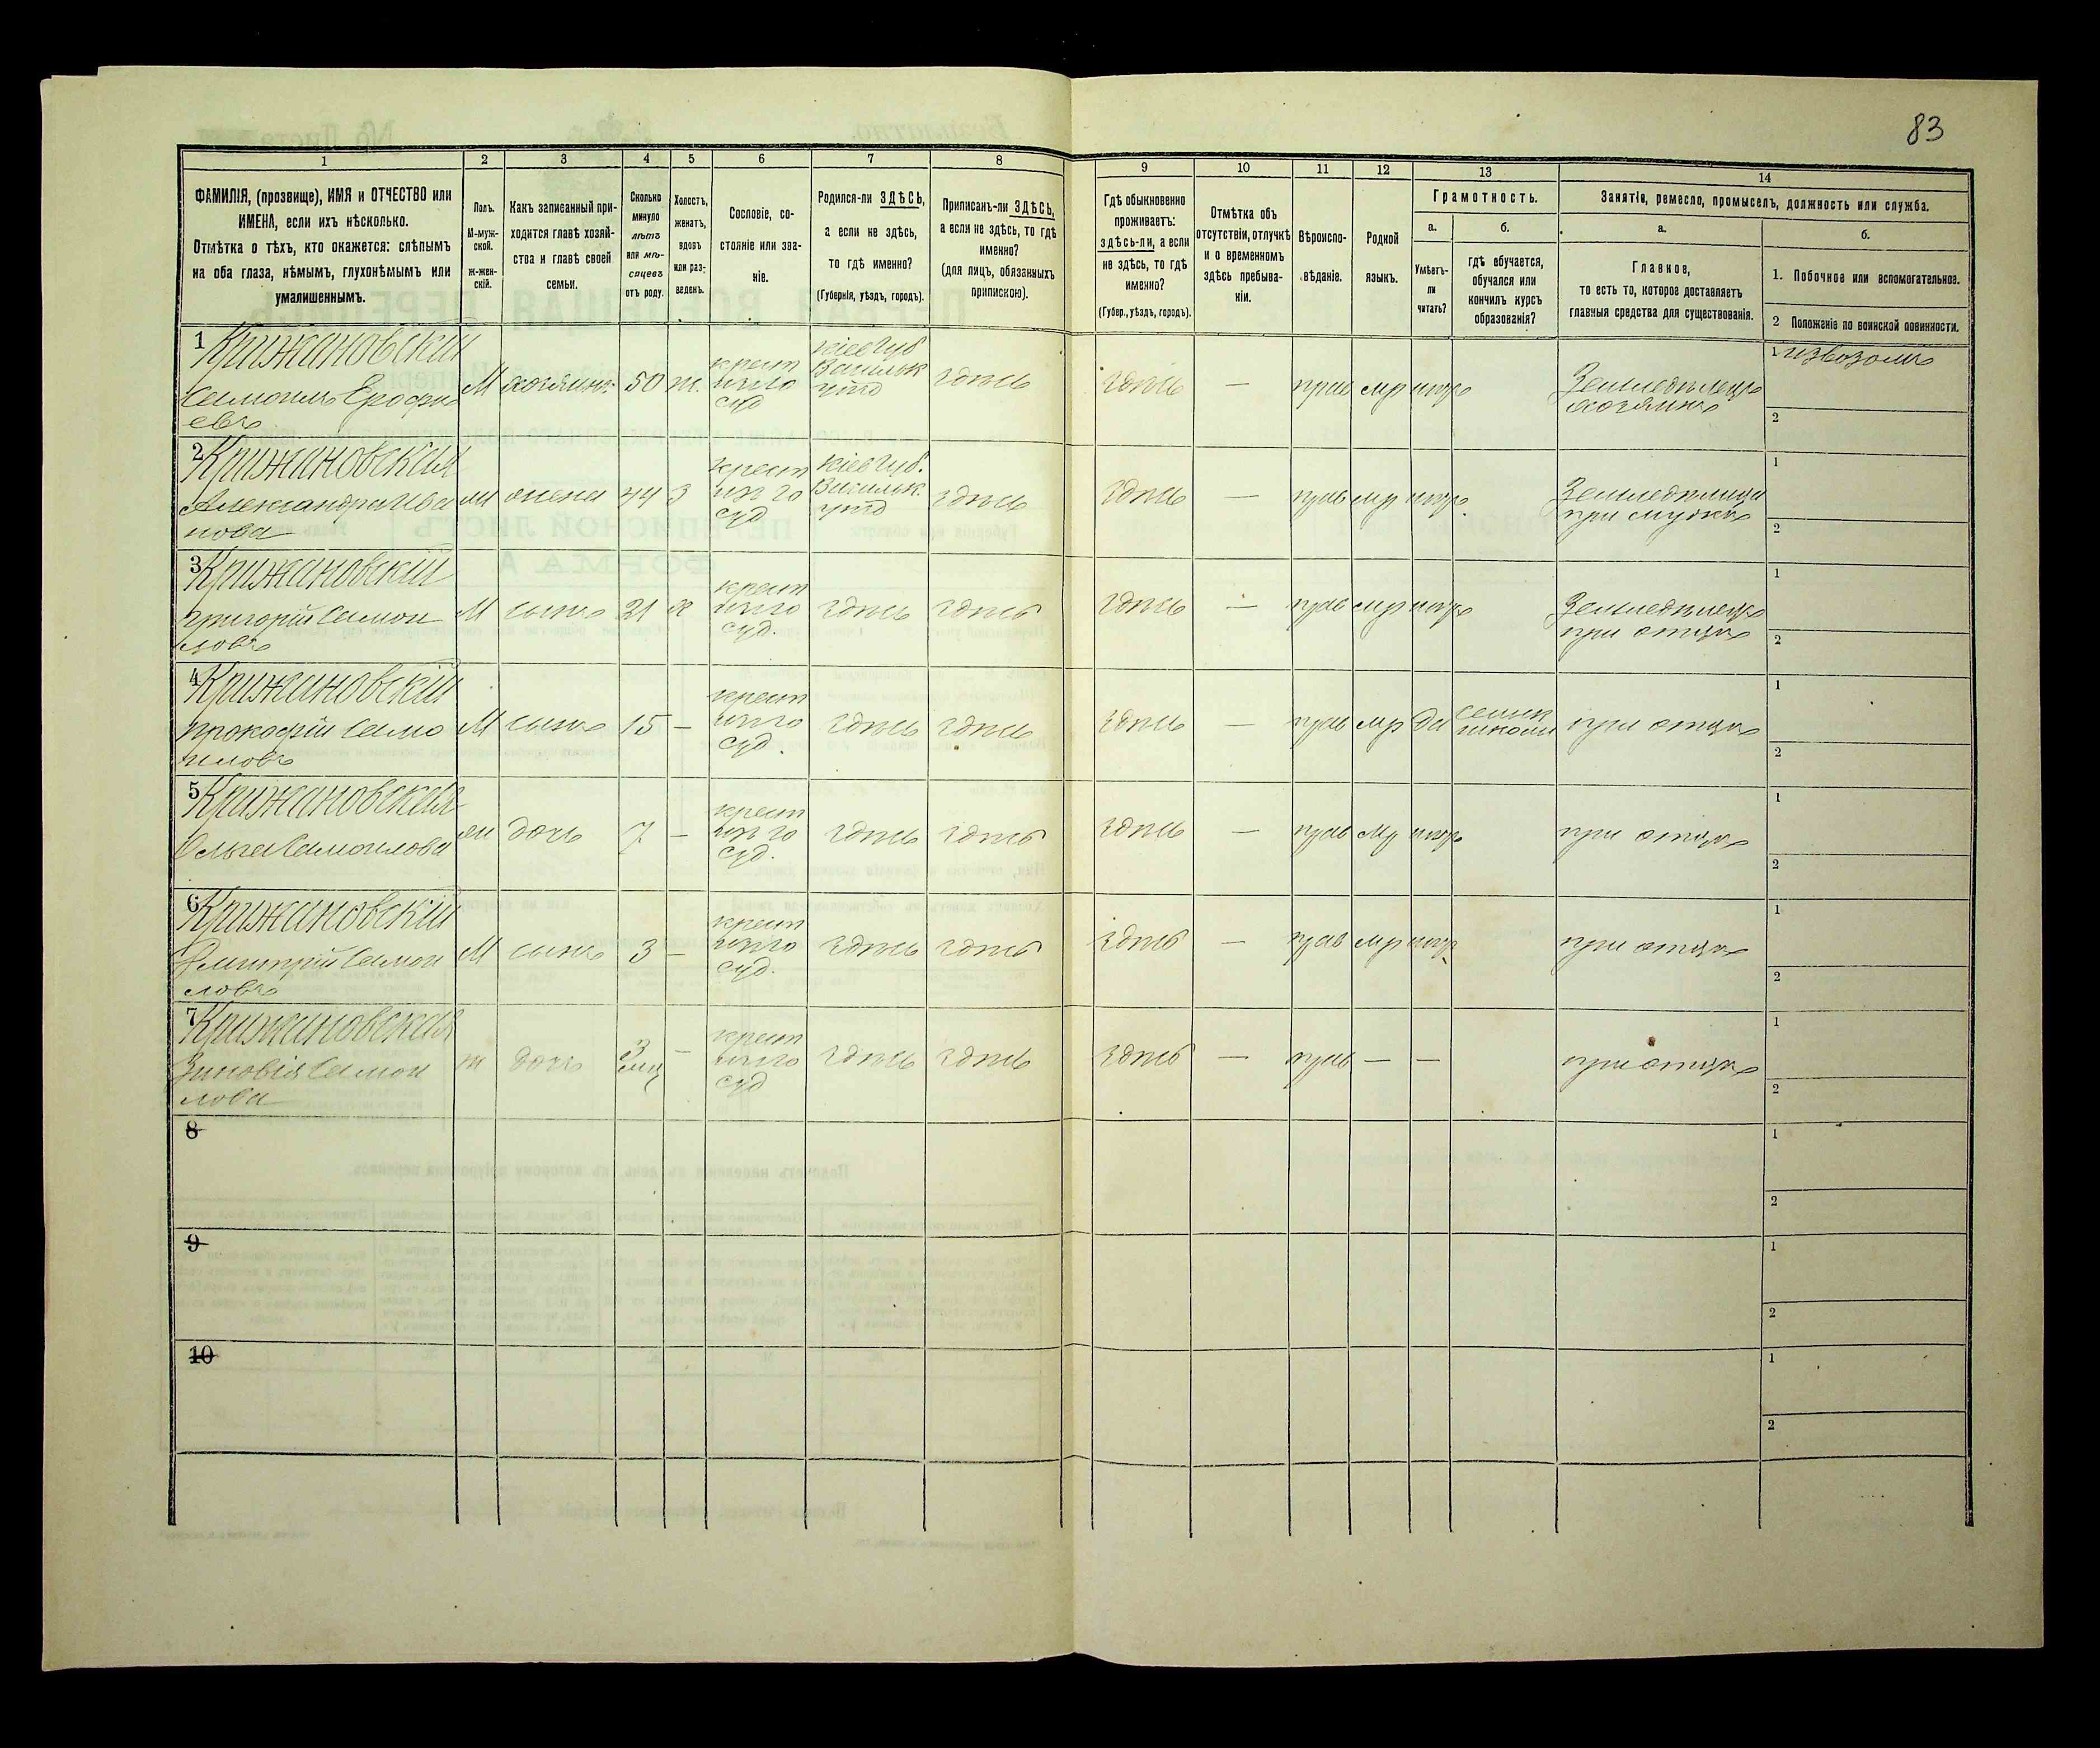 83
1 2 3 4 5 6 7 8 9 10 11 12 13 14
ФАМИЛІЯ, (прозвище), ИМЯ и ОТЧЕСТВО или
ИМЕНА, если ихъ нѣсколько.
Отмѣтка о тѣхъ, кто окажется: слѣпымъ
на оба глаза, нѣмымъ, глухонѣмымъ или
умалишеннымъ.
Полъ.
М-муж-
ской.
ж-жен-
скій.
Какъ записанный при-
ходится главѣ хозяй-
ства и главѣ своей
семьи.
Сколько
минуло
лѣтъ
или мѣ-
сяцевъ
отъ роду.
Холостъ,
женатъ,
вдовъ
или раз-
веденъ.
Сословіе, со-
стояніе или зва-
ніе.
Родился-ли ЗДѢСЬ,
а если не здѣсь,
то гдѣ именно?
(Губернія, уѣздъ, городъ).
Приписанъ-ли ЗДѢСЬ,
а если не здѣсь, то гдѣ
именно?
(для лицъ, обязанныхъ
припискою).
Гдѣ обыкновенно
проживаетъ:
здѣсь-ли, а если
не здѣсь, то гдѣ
именно?
(Губер., уѣздъ, городъ).
Отмѣтка объ
отсутствіи, отлучкѣ
и о временномъ
здѣсь пребыва-
ніи.
Вѣроиспо-
вѣданіе.
Родной
языкъ.
Грамотность.
а.
Умѣетъ-
ли
читать?
б.
гдѣ обучается,
обучался или
кончилъ курсъ
образованія?
Занятіе, ремесло, промыселъ, должность или служба.
а.
Главное,
то есть то, которое доставляетъ
главныя средства для существованія.
б.
1. Побочное или вспомогательное.
2 Положеніе по воинской повинности.
1 Крижановскій
Самоилъ Ерофи
евъ
М хозяинъ 50 ж.
крест
изъ го
суд
Кіев Губ
Васильк
уѣзд
здѣсь здѣсь — прав мр нѣтъ
Земледѣлецъ
хозяинъ
1 извозомъ
2
2 Крижановская
Александра Ива
нова
ж жена 44 З
крест
изъ го
суд
Кіев Губ.
Васильк.
уѣзд
здѣсь здѣсь — прав мр нѣтъ
Земледѣлица
при мужѣ
1
2
3 Крижановскій
Григорій Самои
ловъ
М сынъ 21 х
крест
изъ го
суд.
здѣсь здѣсь здѣсь — прав мр нѣтъ
Земледѣлецъ
при отцѣ
1
2
4 Крижановскій
Прокофій Само
иловъ
М сынъ 15 —
крест
изъ го
суд.
здѣсь здѣсь здѣсь — прав мр да
школи
при отцѣ
1
2
5 Крижановская
Ольга Самоилова
ж дочь 7 —
крест
изъ го
суд.
здѣсь здѣсь здѣсь — прав мр нѣтъ при отцѣ
1
2
6 Крижановскій
Дмитрій Самои
ловъ
М сынъ 3 —
крест
изъ го
суд.
здѣсь здѣсь здѣсь — прав мр нѣтъ при отцѣ
1
2
7 Крижановская
Зиновія Самои
лова
ж дочь 3 мц —
крест
изъ го
суд
здѣсь здѣсь здѣсь — прав — — при отцѣ
1
2
8
1
2
9
1
2
10
1
2